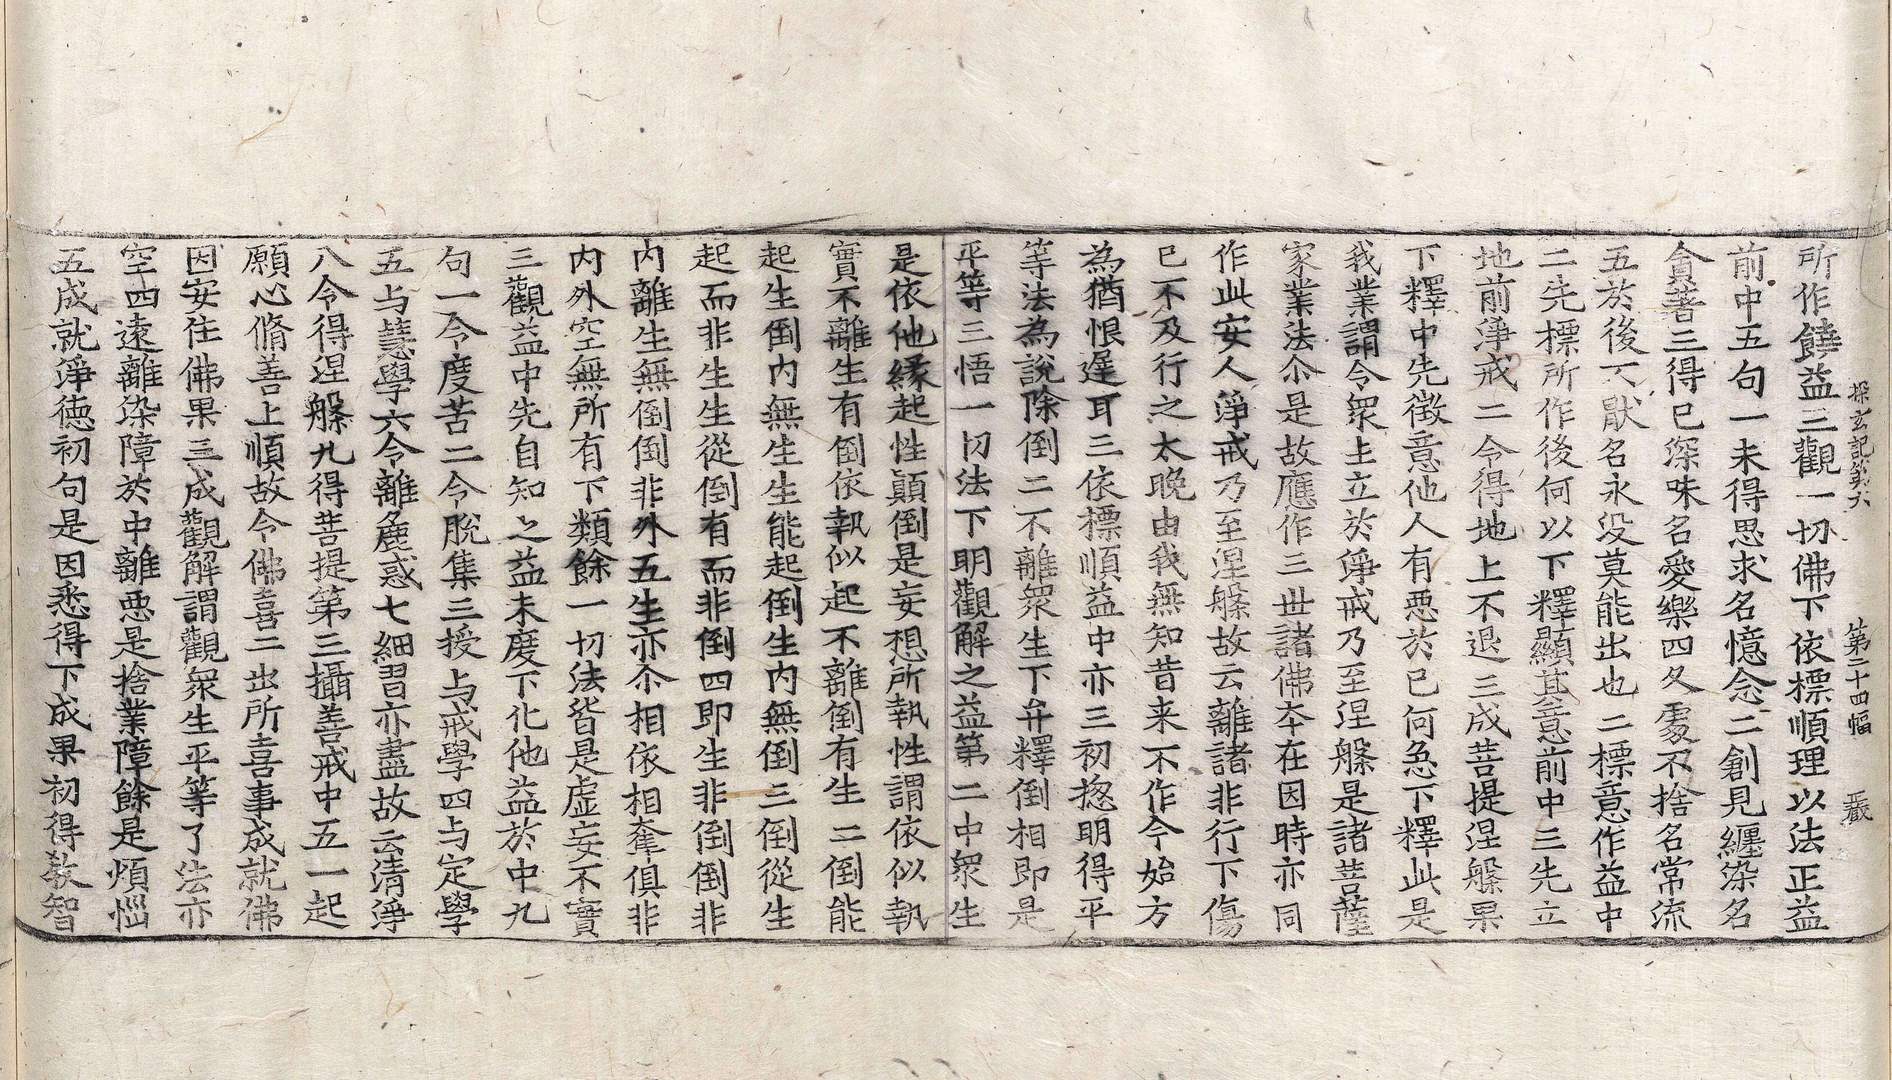 探玄記第六 第二十四幅 嚴
所作饒益三觀一切佛下依標順理以法正益
前中五句一未得思求名憶念二創見纏染名
貪著三得已深味名愛樂四久處不捨名常流
五於後不猒名永没莫能出也二標意作益中
二先標所作後何以下釋顯其意前中三先立
地前淨戒二令得地上不退三成菩提涅槃果
下釋中先徵意他人有惡於已何急下釋此是
我業謂令衆生立於淨戒乃至涅槃是諸菩薩
家業法尒是故應作三世諸佛夲在因時亦同
作此安人淨戒乃至涅槃故云離諸非行下傷
已不及行之太晚由我無知昔来不作今始方
為猶恨遲耳三依標順益中亦三初揔明得平
等法為說除倒二不離衆生下弁釋倒相即是
平等三悟一切法下明觀解之益第二中衆生
是依他縁起性顛倒是妄想所執性謂依似執
實不離生有倒依執似起不離倒有生二倒能
起生倒内無生生能起倒生内無倒三倒從生
起而非生生從倒有而非倒四即生非倒倒非
内離生無倒倒非外五生亦尒相依相奪俱非
内外空無所有下類餘一切法皆是虛妄不實
三觀益中先自知之益未度下化他益於中九
句一令度苦二令脫集三授与戒學四与定學
五与慧學六令離麁惑七細習亦盡故云清淨
八令得涅槃九得菩提第三攝善戒中五一起
願心脩善上順故今佛喜二出所喜事成就佛
因安住佛果三成觀解謂觀衆生平等了法亦
空四遠離染障於中離惡是捨業障餘是煩惱
五成就淨德初句是因悉得下成果初得敎智